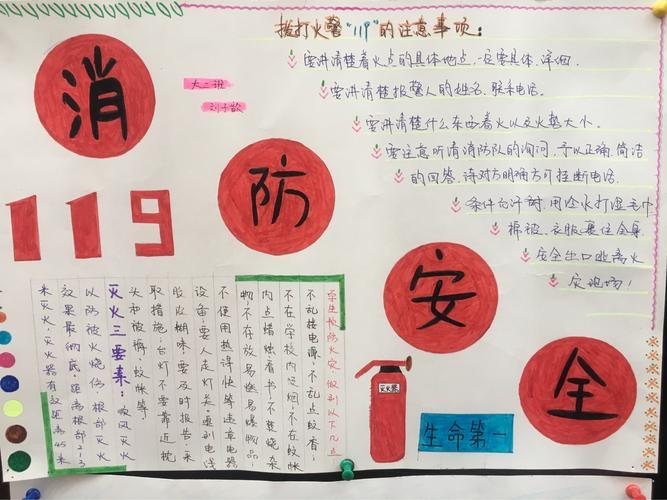 消
防
安
全
119
大二班
刘子歆
拨打火警“119”的注意事项:
要讲清楚着火点的具体地点,一定要具体、详细.
要讲清楚报警人的姓名、联系电话.
要讲清楚什么东西着火以及火势大小.
要注意听清消防队的询问,予以正确、简洁
的回答,待对方明确方可挂断电话.
条件允许时,用冷水打湿毛巾
棉被、衣服裹住全身
安全出口逃离火
灾现场!
学生预防火灾,做到以下几点
不乱接电源,不乱点蚊香;
不在学校内吸烟;不在蚊帐
内点蜡烛看书;不焚烧杂
物;不存放易燃易爆物品;
不使用热得快等违章电器
设备;要人走灯关;遇到电线
胶皮糊味,要及时报告,采
取措施;台灯不要靠近枕
头和被褥,蚊帐等
灭火三要素:吸风灭火
以防被火烧伤,根部灭火
效果最彻底,距离根部2/3
米灭火;灭火器有效距离45米
灭火器
生命第一